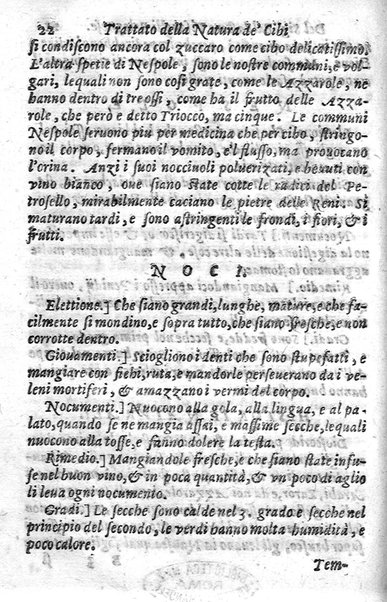 22 Trattato della Natura de' Cibi
si condiscono ancora col zuccaro come cibo delicatissimo.
L'altra spetie di Nespole, sono le nostre communi, e vol-
gari, lequali non sono cosi grate, come le Azzarole, ne
hanno dentro di tre ossi, come ha il frutto delle Azza-
role, che però e detto Triocco, ma cinque. Le communi
Nespole seruono piu per medicina che per cibo, stringo-
no il corpo, fermano il vomito, e'l flusso, ma prouocano
l'orina. Anzi i suoi nocciuoli poluerizati, e beuuti con
vino bianco, oue siano state cotte le radici del Pe-
trosello, mirabilmente caciano le pietre delle Reni. Si
maturano tardi, e sono astringenti le frondi, i fiori, & i
frutti.
NOCI.
Elettione.] Che siano grandi, lunghe, mature, e che fa-
cilmente si mondino, e sopra tutto, che siano fresche, e non
corrotte dentro.
Giouamenti.] Sciogliono i denti che sono stupefatti, e
mangiare con fichi, ruta, e mandorle perseuerano da i ve-
leni mortiferi, & amazzano i vermi del corpo.
Nocumenti.] Nuocono alla gola, alla lingua, e al pa-
lato, quando se ne mangia assai, e massime secche, lequali
nuocono alla tosse, e fanno dolere la testa.
Rimedio.] Mangiandole fresche, e che siano state infu-
se nel buon vino, & in poca quantità, & vn poco di aglio
li leua ogni nocumento.
Gradi.] Le secche sono calde nel 3. grado e secche nel
principio del secondo, le verdi hanno molta humidità, e
poco calore.
Tem-